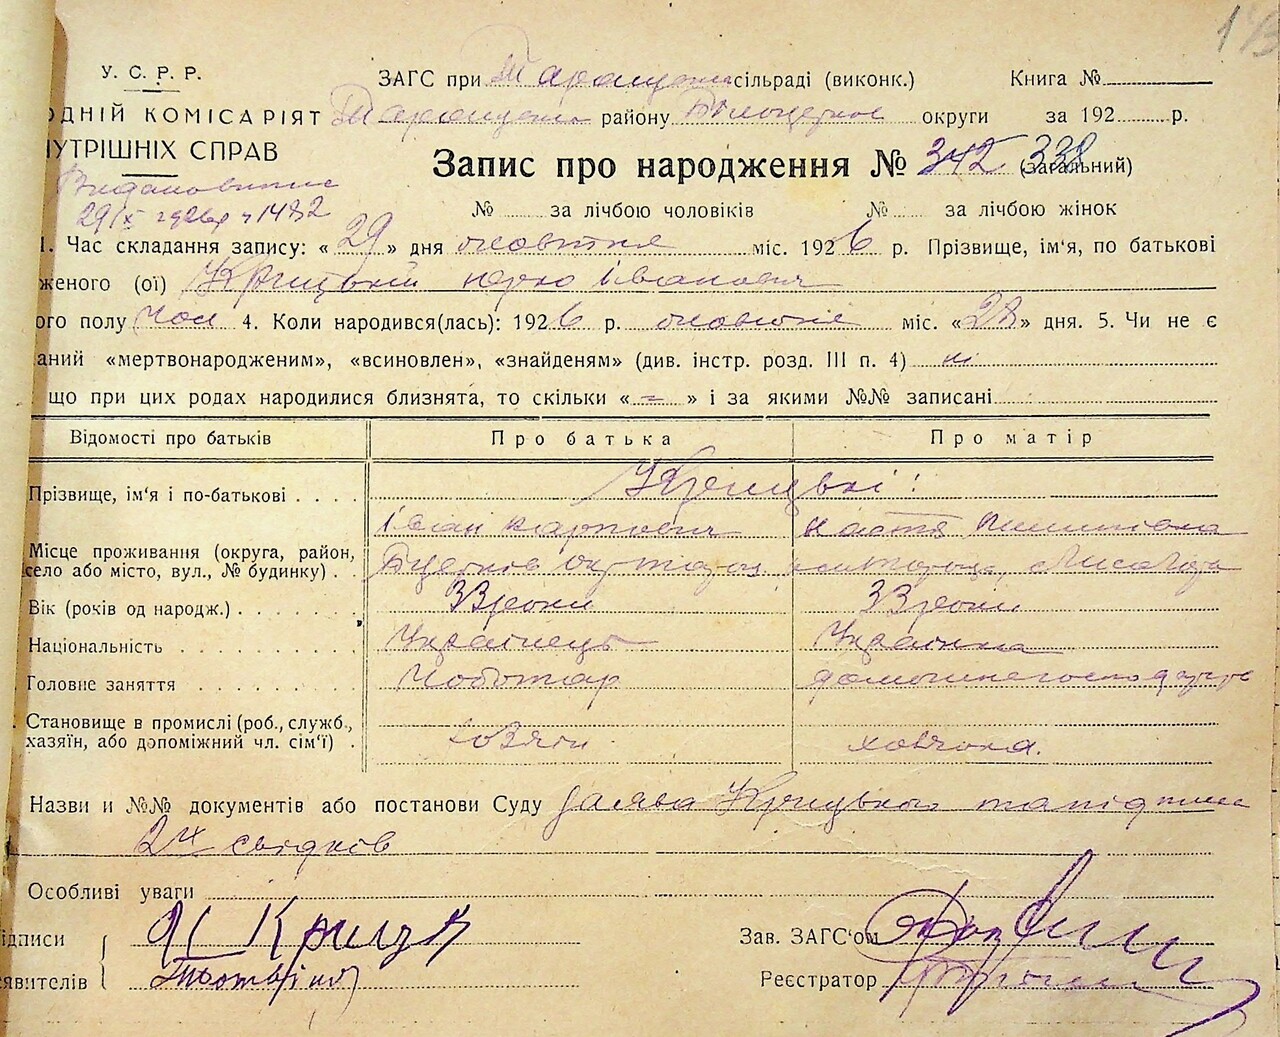 143
У. С. Р. Р.
ЗАГС при Таращан. сільраді (виконк.) Книга №
ОДНІЙ КОМІСАРІЯТ Таращан. району Білоцерків округи за 192 р.
НУТРІШНІХ СПРАВ
Запис про народження № 342 338 (загальний)
29/X 1926р ч 1482
№ за лічбою чоловіків № за лічбою жінок
1. Час складання запису: « 29 » дня жовтня міс. 1926 р. Прізвище, ім'я, по батькові
женого (ої) Крицький Юрко Іванович
ого полу Чол 4. Коли народився(лась): 1926 р. жовтня міс. «28» дня. 5. Чи не є
аний «мертвонародженим», «всиновлен», «знайденям» (див. інстр. розд. III п. 4) ні
що при цих родах народилися близнята, то скільки « – » і за якими №№ записані
Відомості про батьків Про батька Про матір
Прізвище, ім'я і по-батькові Крицькі:
Іван Карпович Настя Пилипівна
Місце проживання (округа, район,
село або місто, вул., № будинку)
Вік (років од народж.) 33 роки 33 роки
Національність Українець Українка
Головне заняття Чоботар
Становище в промислі (роб., служб.,
хазяїн, або допоміжний чл. сім'ї)
Назви и №№ документів або постанови Суду Заява Крицького та підписи
2х свідків
Особливі уваги
ідписи
Зав. ЗАГС'ом
явителів
Реєстратор